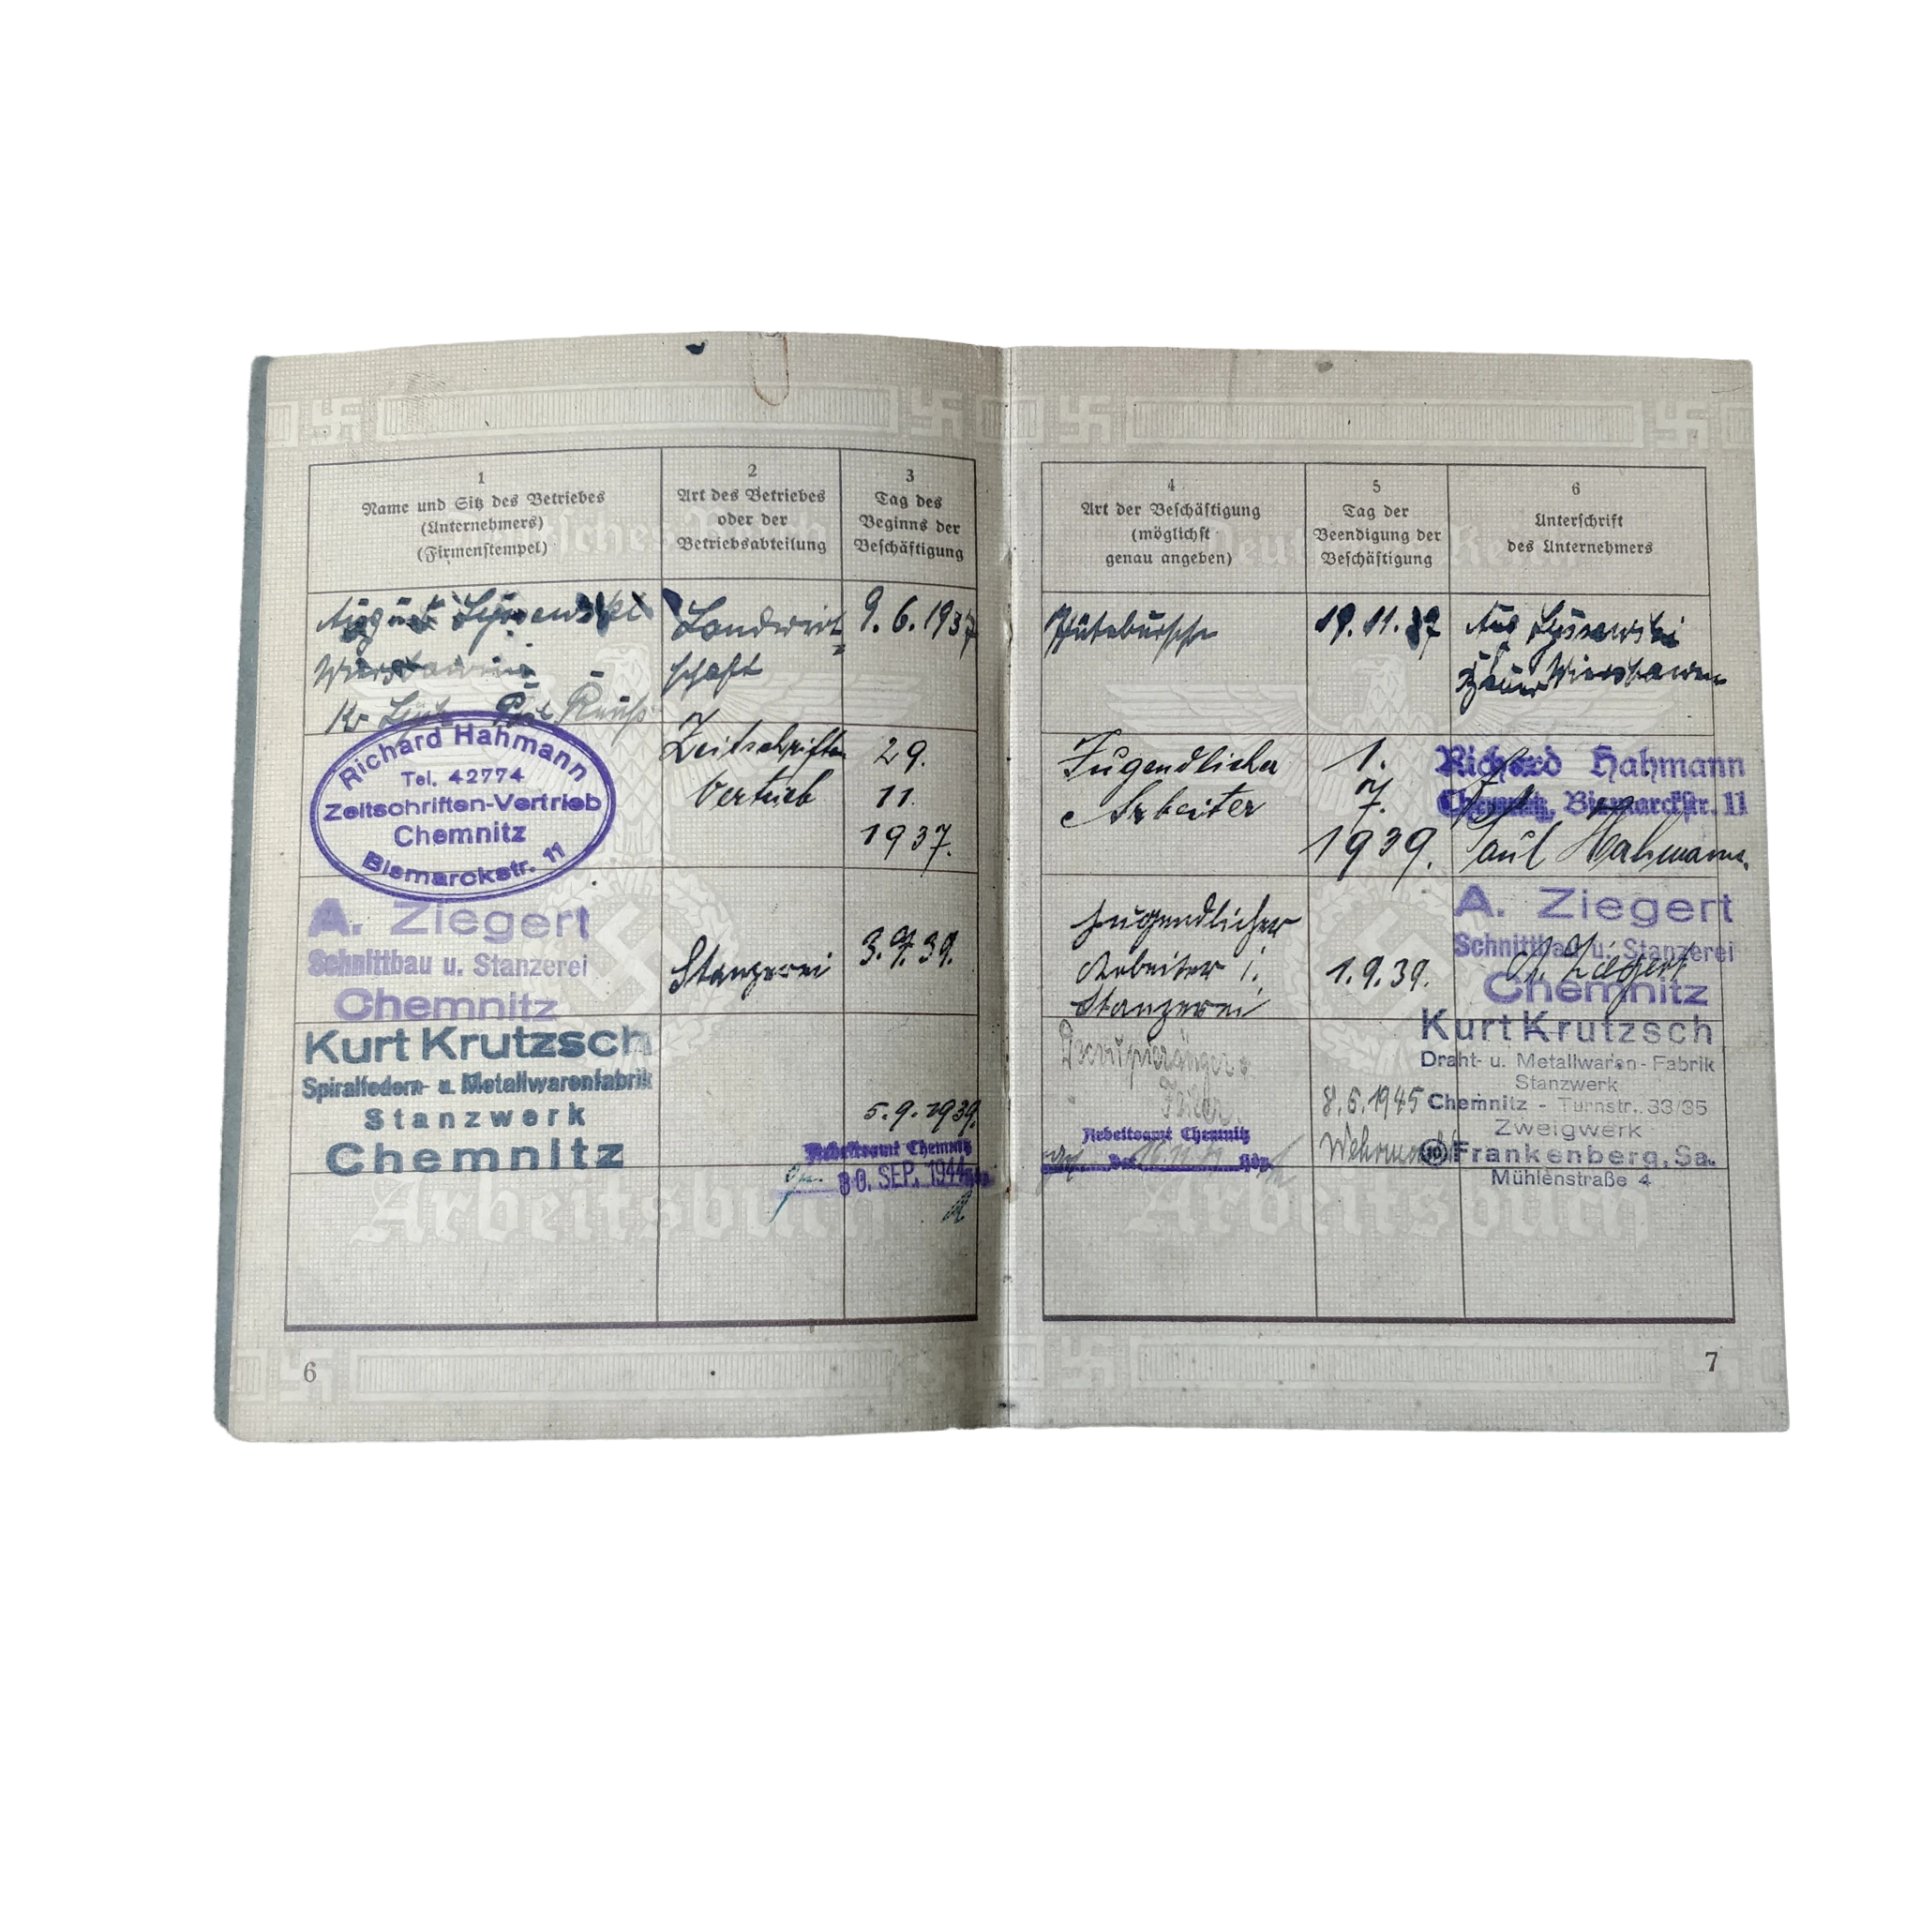 1
Name und Sitz des Betriebes
(Unternehmers)
(Firmenstempel)
2
Art des Betriebes
oder der
Betriebsabteilung
3
Tag des
Beginns der
Beschäftigung
August
Landwirt
schaft
9.6.1937
Kr
Richard Hahmann
Tel. 42774
Zeitschriften-Vertrieb
Chemnitz
Bismarckstr. 11
Zeitschriften
Vertrieb
29.
11.
1937.
A. Ziegert
Schnittbau u. Stanzerei
Chemnitz
Stanzerei
3.7.39.
Kurt Krutzsch
Spiralfedern- u. Metallwarenfabrik
Stanzwerk
Chemnitz
5.9.1939.
Arbeitsamt Chemnitz
30. SEP. 1944
Arbeitsbuch
6
4
Art der Beschäftigung
(möglichst
genau angeben)
5
Tag der
Beendigung der
Beschäftigung
6
Unterschrift
des Unternehmers
Deutsches Reich
19.11.37
Jugendlicher
Arbeiter
1.
7.
1939.
Richard Hahmann
Chemnitz, Bismarckstr. 11
Paul Hahmann.
Jugendlicher
Arbeiter i.
Stanzerei
1.9.39.
A. Ziegert
Schnittbau u. Stanzerei
Chemnitz
A. Ziegert
Kurt Krutzsch
Draht- u. Metallwaren-Fabrik
Stanzwerk
Chemnitz - Turnstr. 33/35
Zweigwerk
Frankenberg, Sa.
Mühlenstraße 4
1945
Wehrmacht
Arbeitsamt Chemnitz
Arbeitsbuch
7